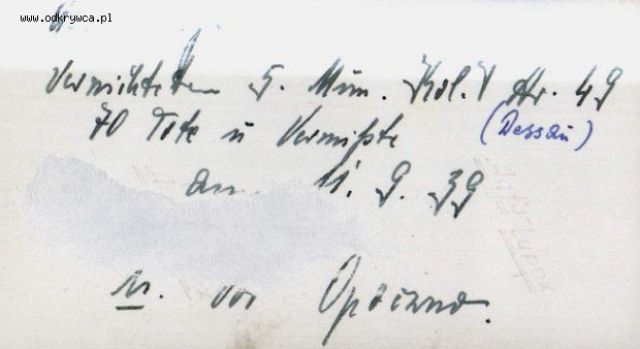 www.odkrywca.pl
Vernichteten 5. Mun. Kol. Nr. 49
70 Tote u Vermißte (Dessau)
am 11. 9. 39
n. von Opoczno.